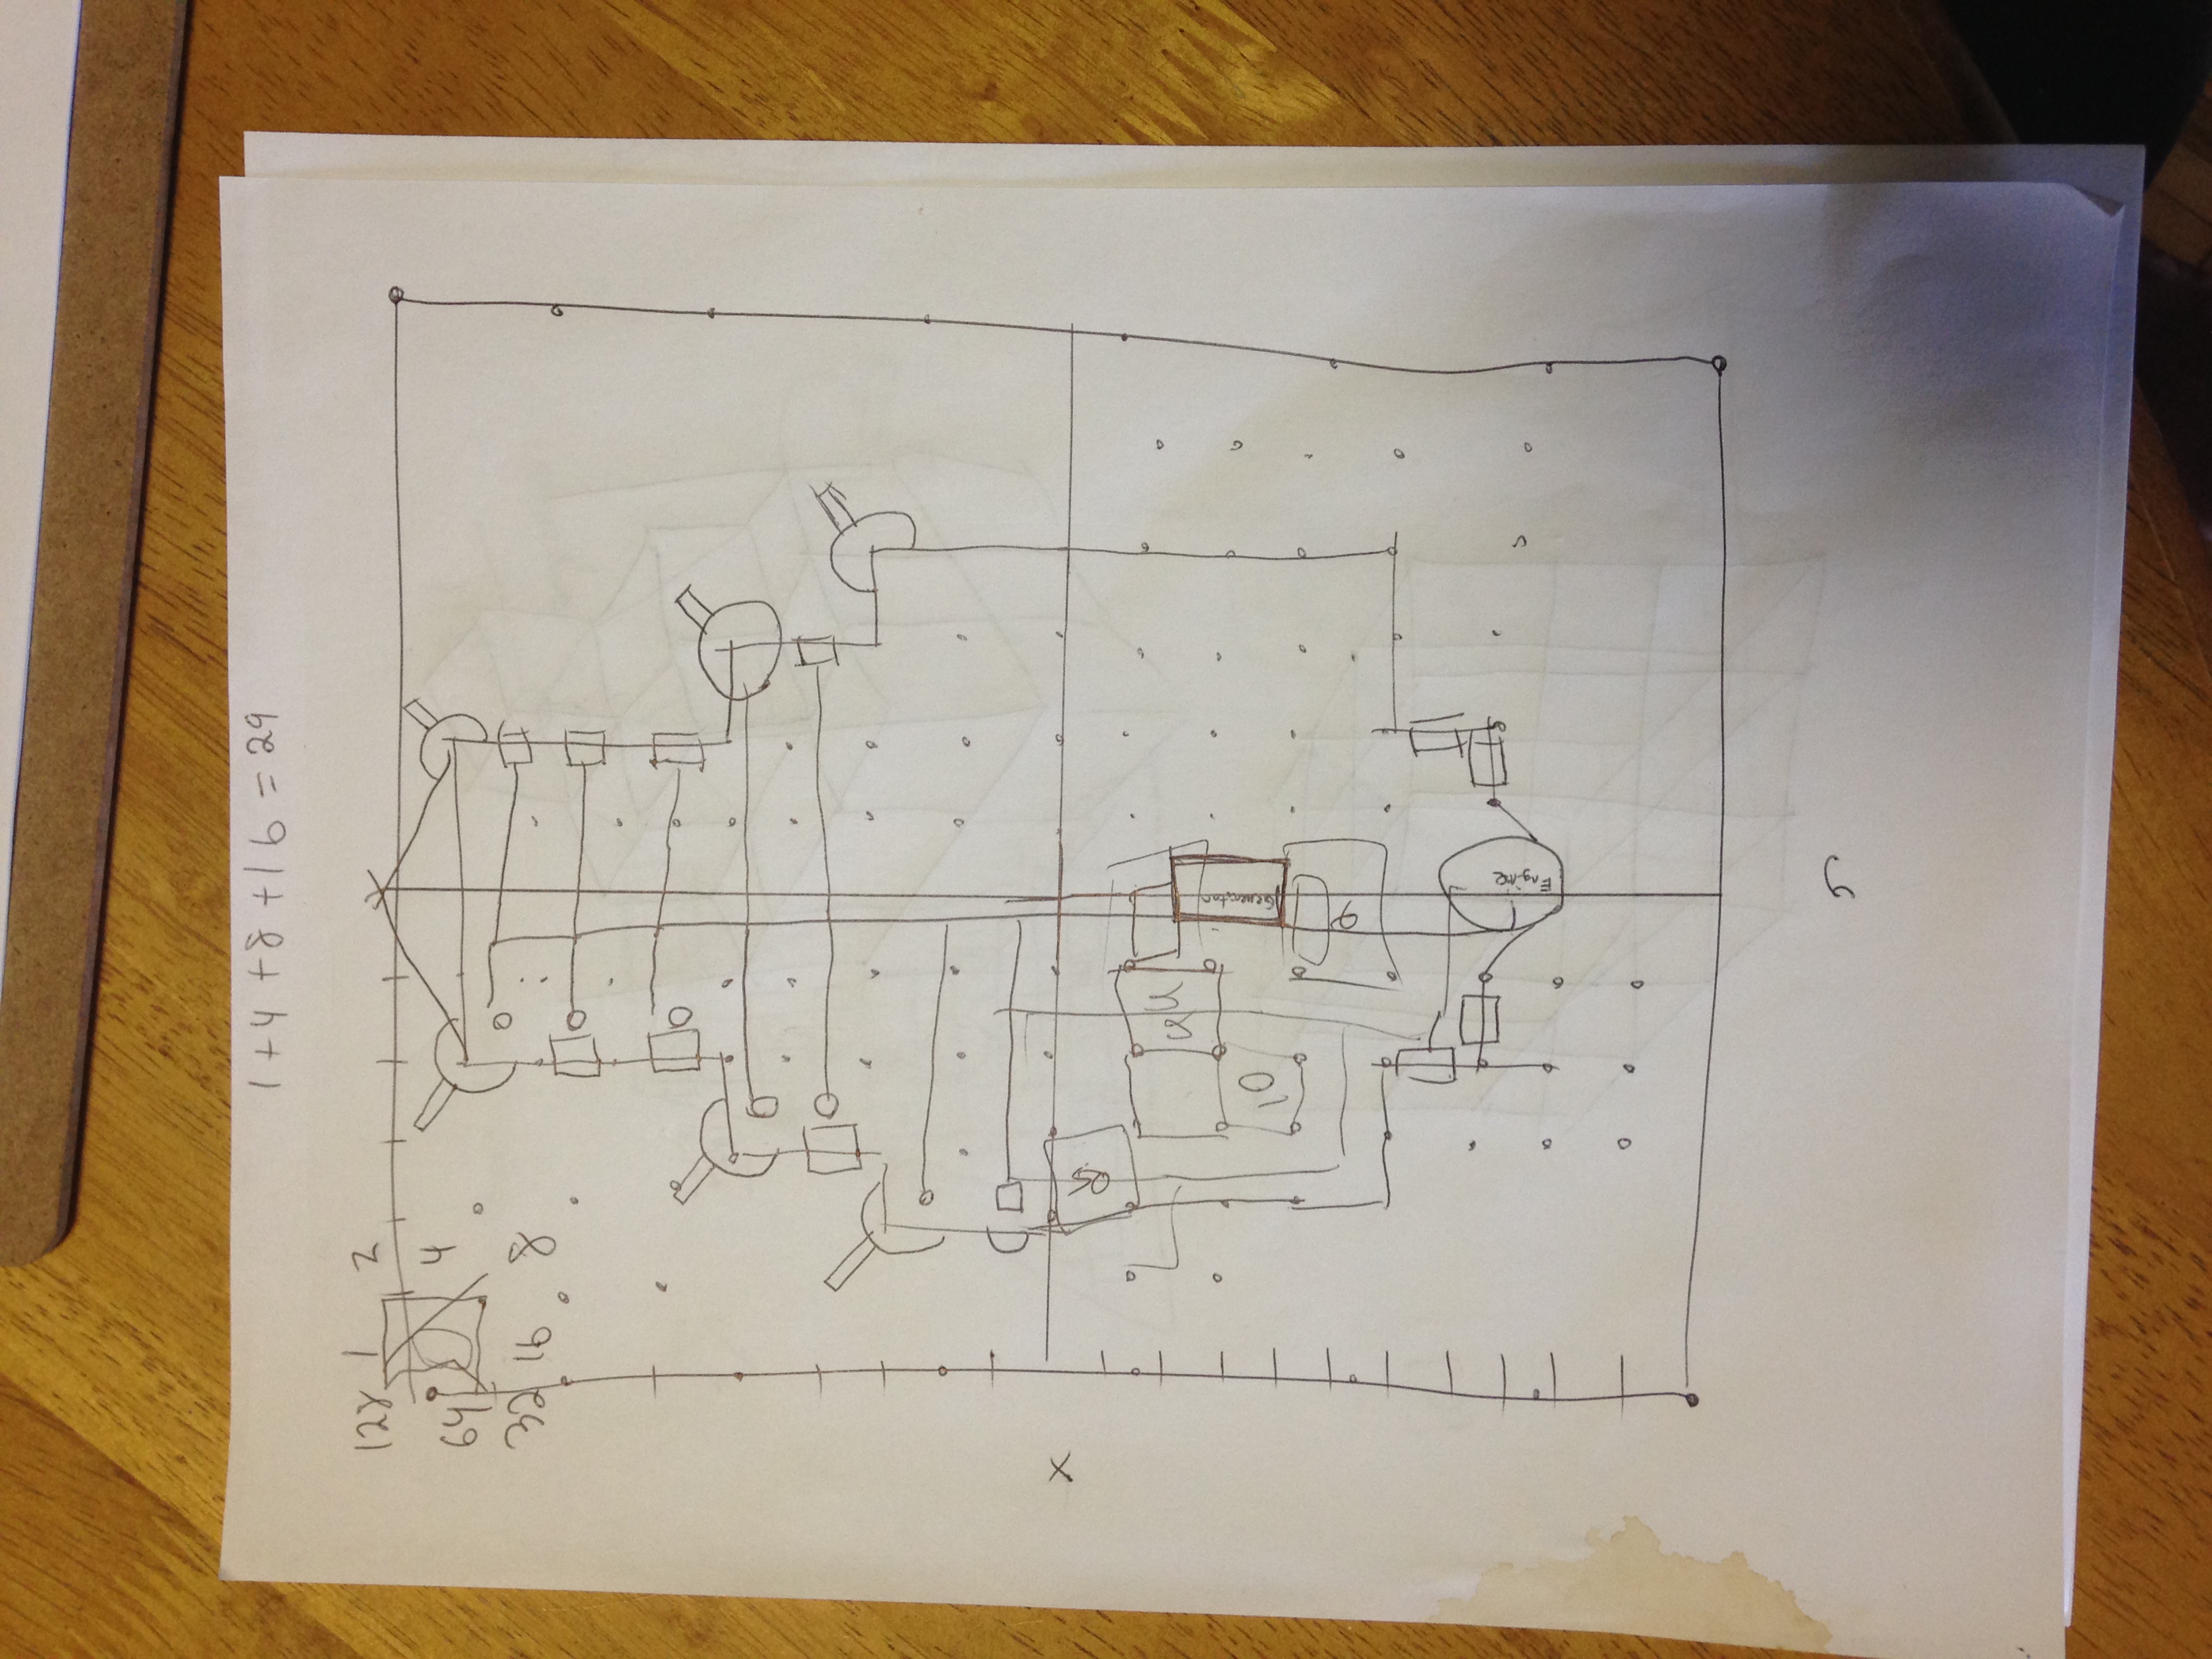 1+4+8+16=29
128 1 2
64 4
32 16 8
x
Generator
Engine